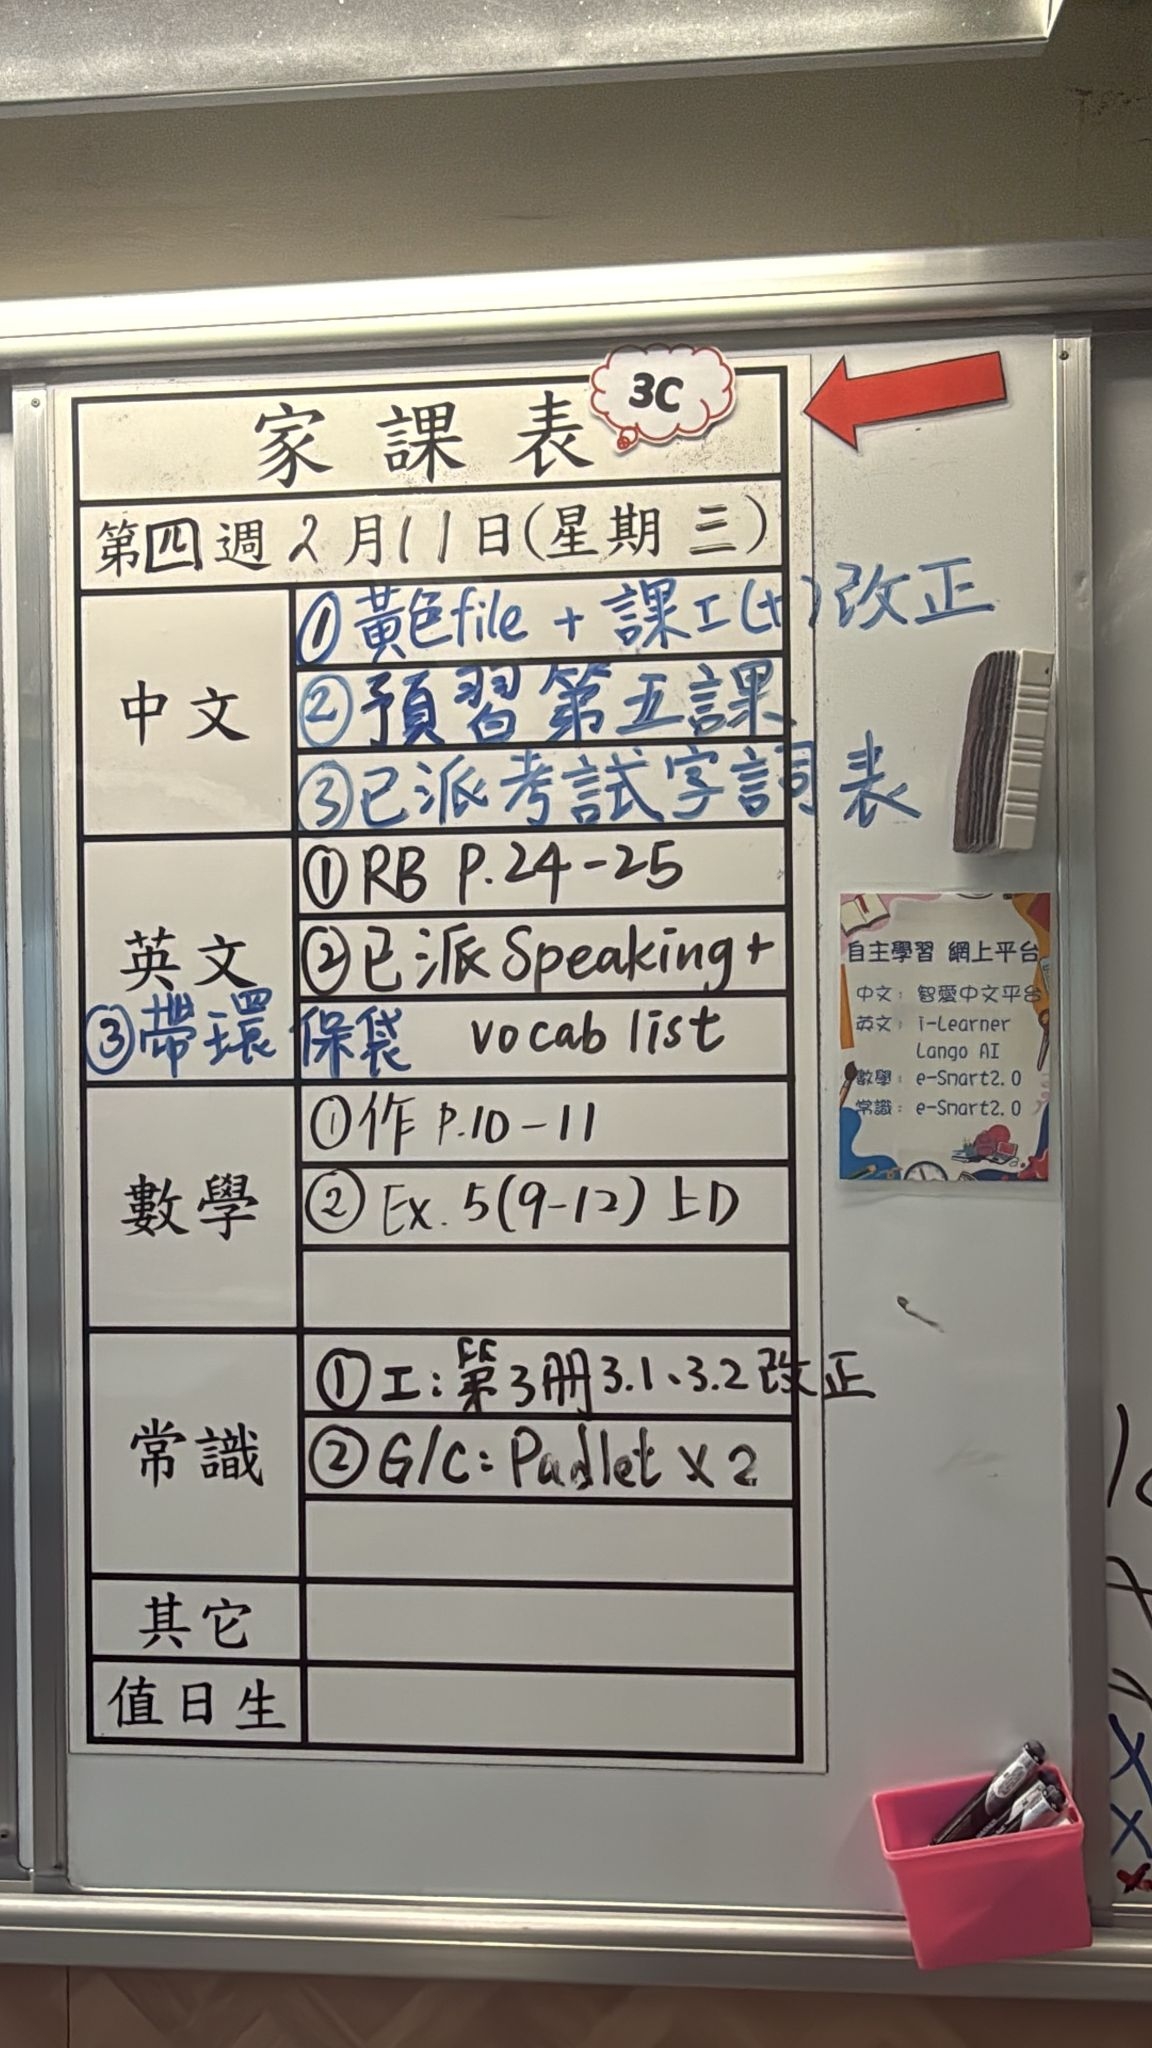 家課表
3C
第四週2月11日(星期三)
中文
①黃色file + 課工(十)改正
②預習第五課
③已派考試字詞表
英文
①RB P.24-25
②已派Speaking+
vocab list
③帶環保袋
數學
①作 P.10-11
②Ex. 5(9-12) 上D
常識
①工:第3冊3.1、3.2改正
②G/C: Padlet x 2
其它
值日生
自主學習 網上平台
中文: 智愛中文平台
英文: i-Learner
Lango AI
數學: e-Smart2.0
常識: e-Smart2.0